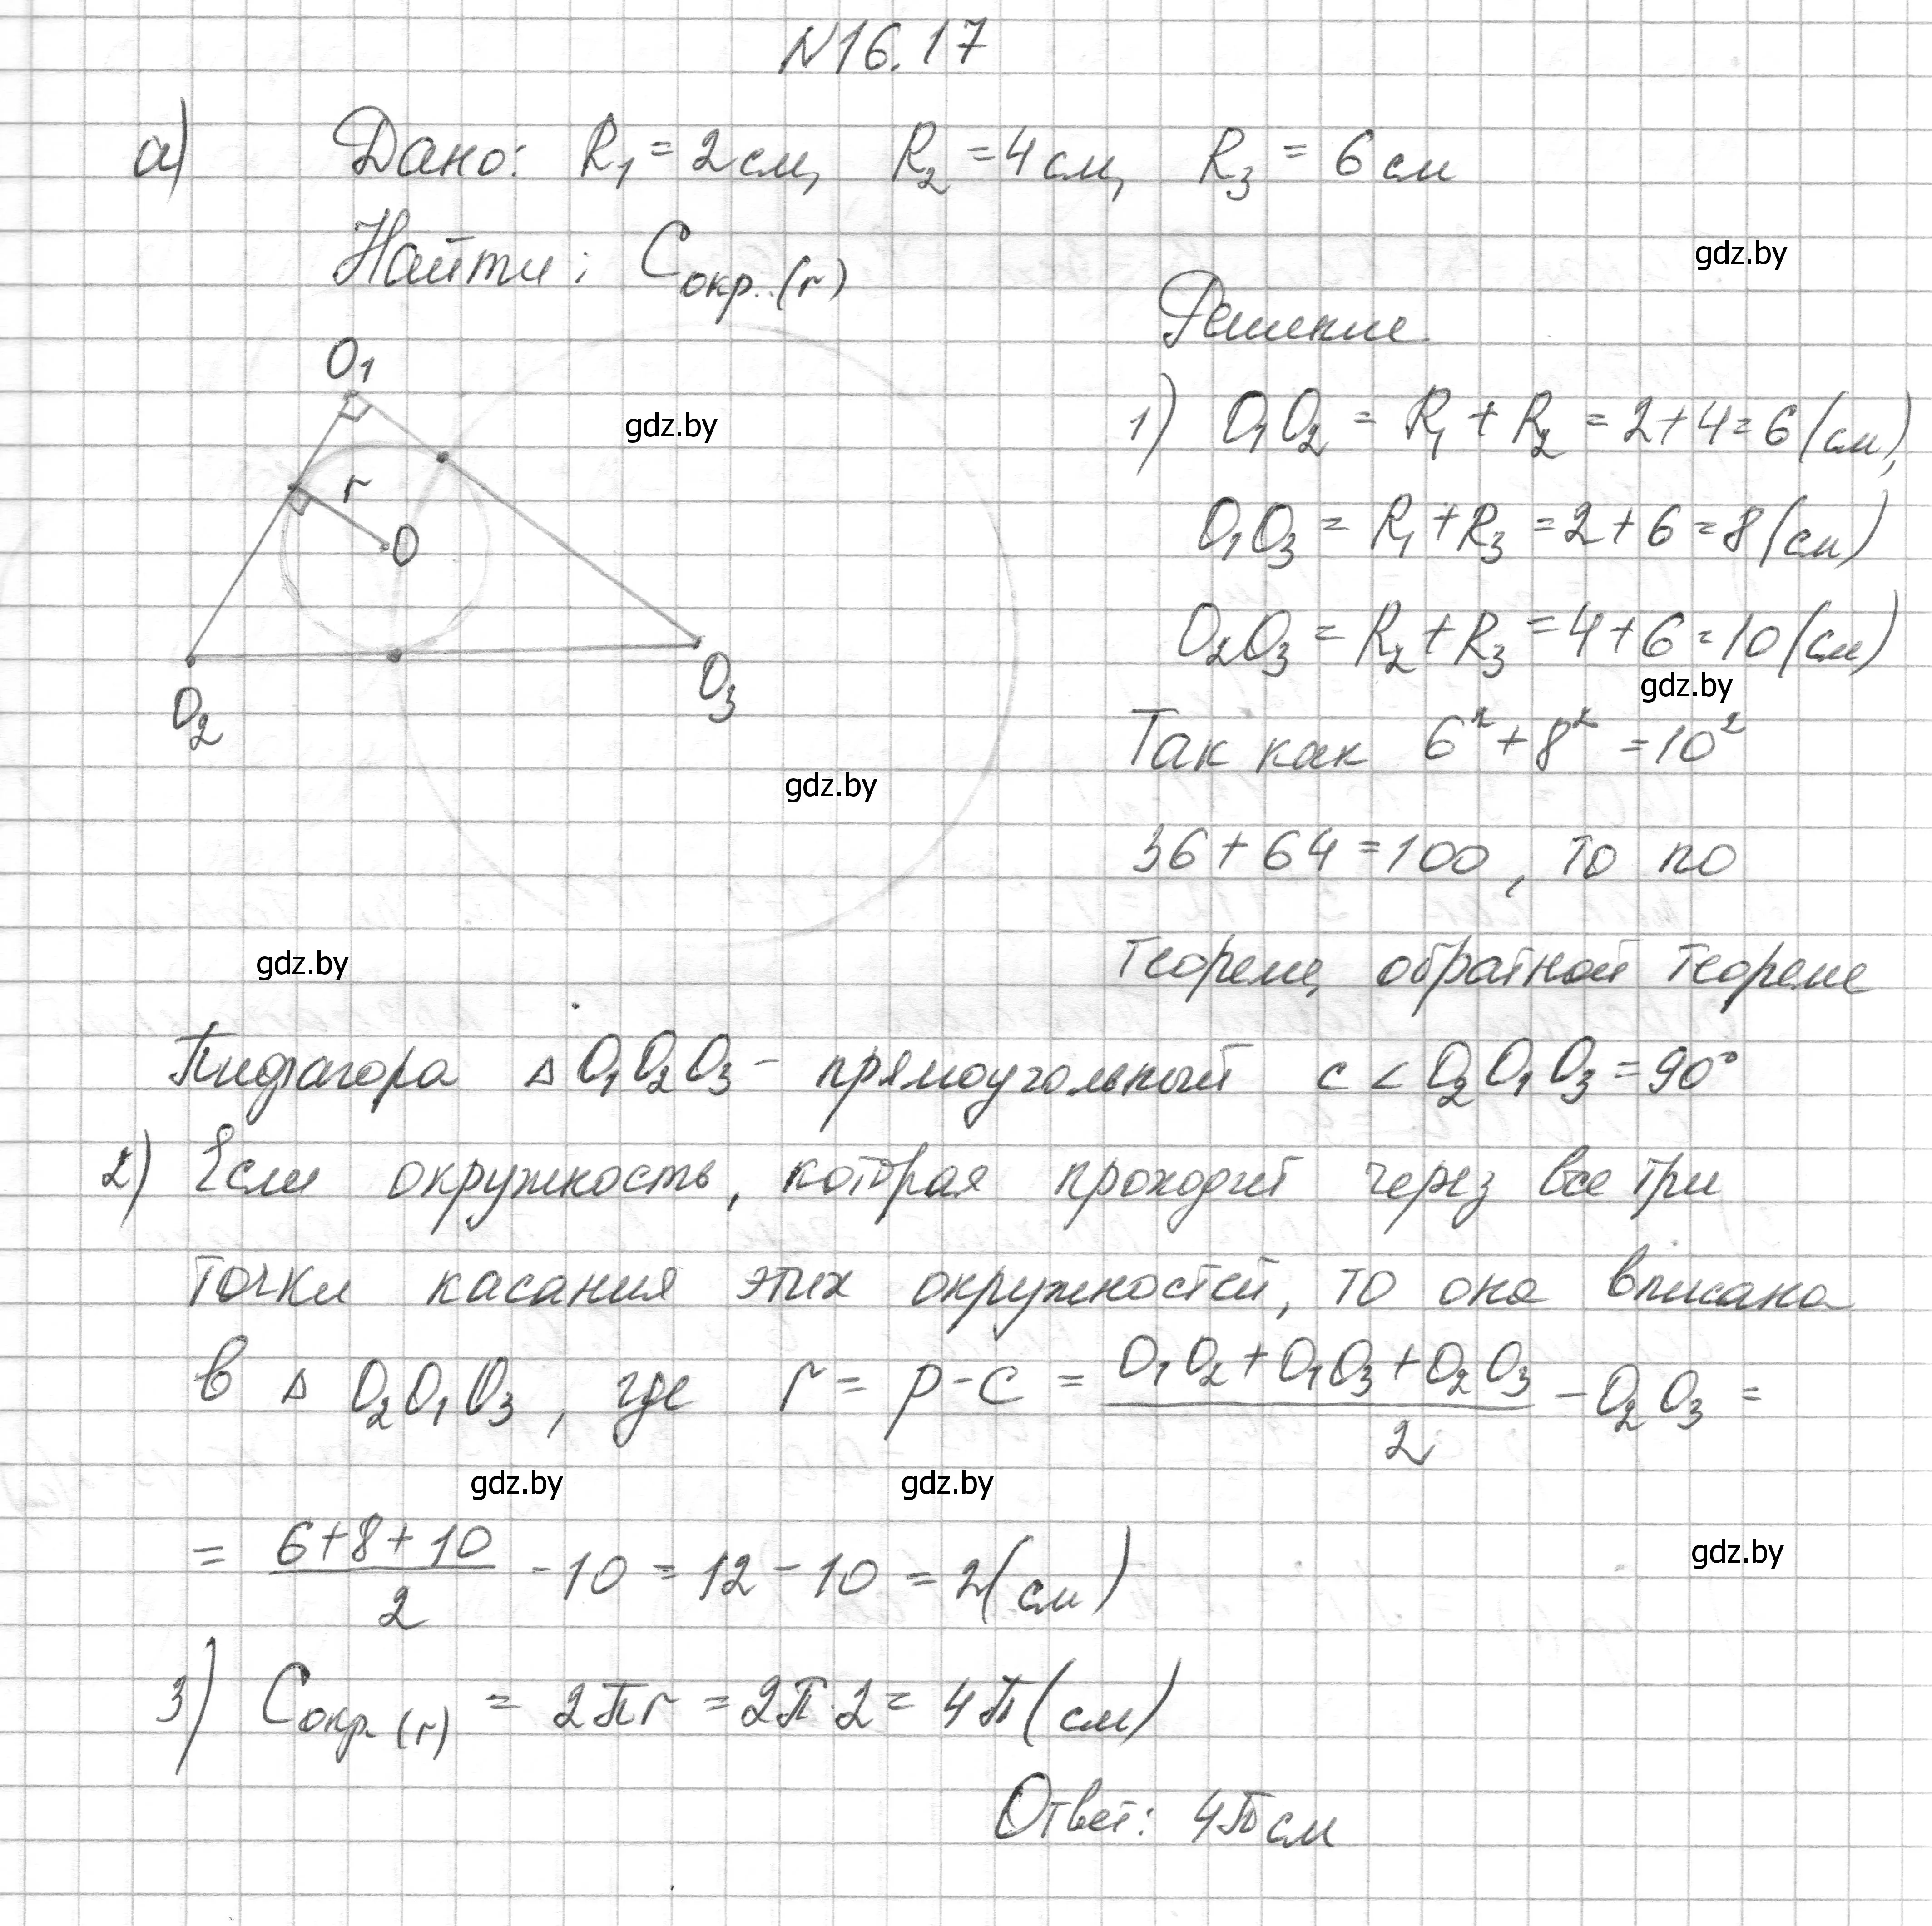 N16.17
а) Дано: R₁ = 2 см, R₂ = 4 см, R₃ = 6 см
Найти: Cокр.(r)
gdz.by
Решение
O₁
1) O₁O₂ = R₁ + R₂ = 2+4=6 (см),
gdz.by
r
O
O₁O₃ = R₁+R₃ = 2+6=8 (см)
O₂O₃ = R₂+R₃ = 4+6=10 (см)
gdz.by
O₂
O₃
Так как 6² + 8² = 10²
gdz.by
36 + 64 = 100, то по
gdz.by
теореме, обратной теореме
Пифагора △ O₁O₂O₃ - прямоугольный с < O₂O₁O₃ = 90°
2) Если окружность, которая проходит через все три
точки касания этих окружностей, то она вписана
в △ O₂O₁O₃, где r = p - c = (O₁O₂ + O₁O₃ + O₂O₃)/2 - O₂O₃ =
gdz.by gdz.by
= (6+8+10)/2 - 10 = 12 - 10 = 2 (см)
gdz.by
3) Cокр.(r) = 2πr = 2π·2 = 4π (см)
Ответ: 4π см